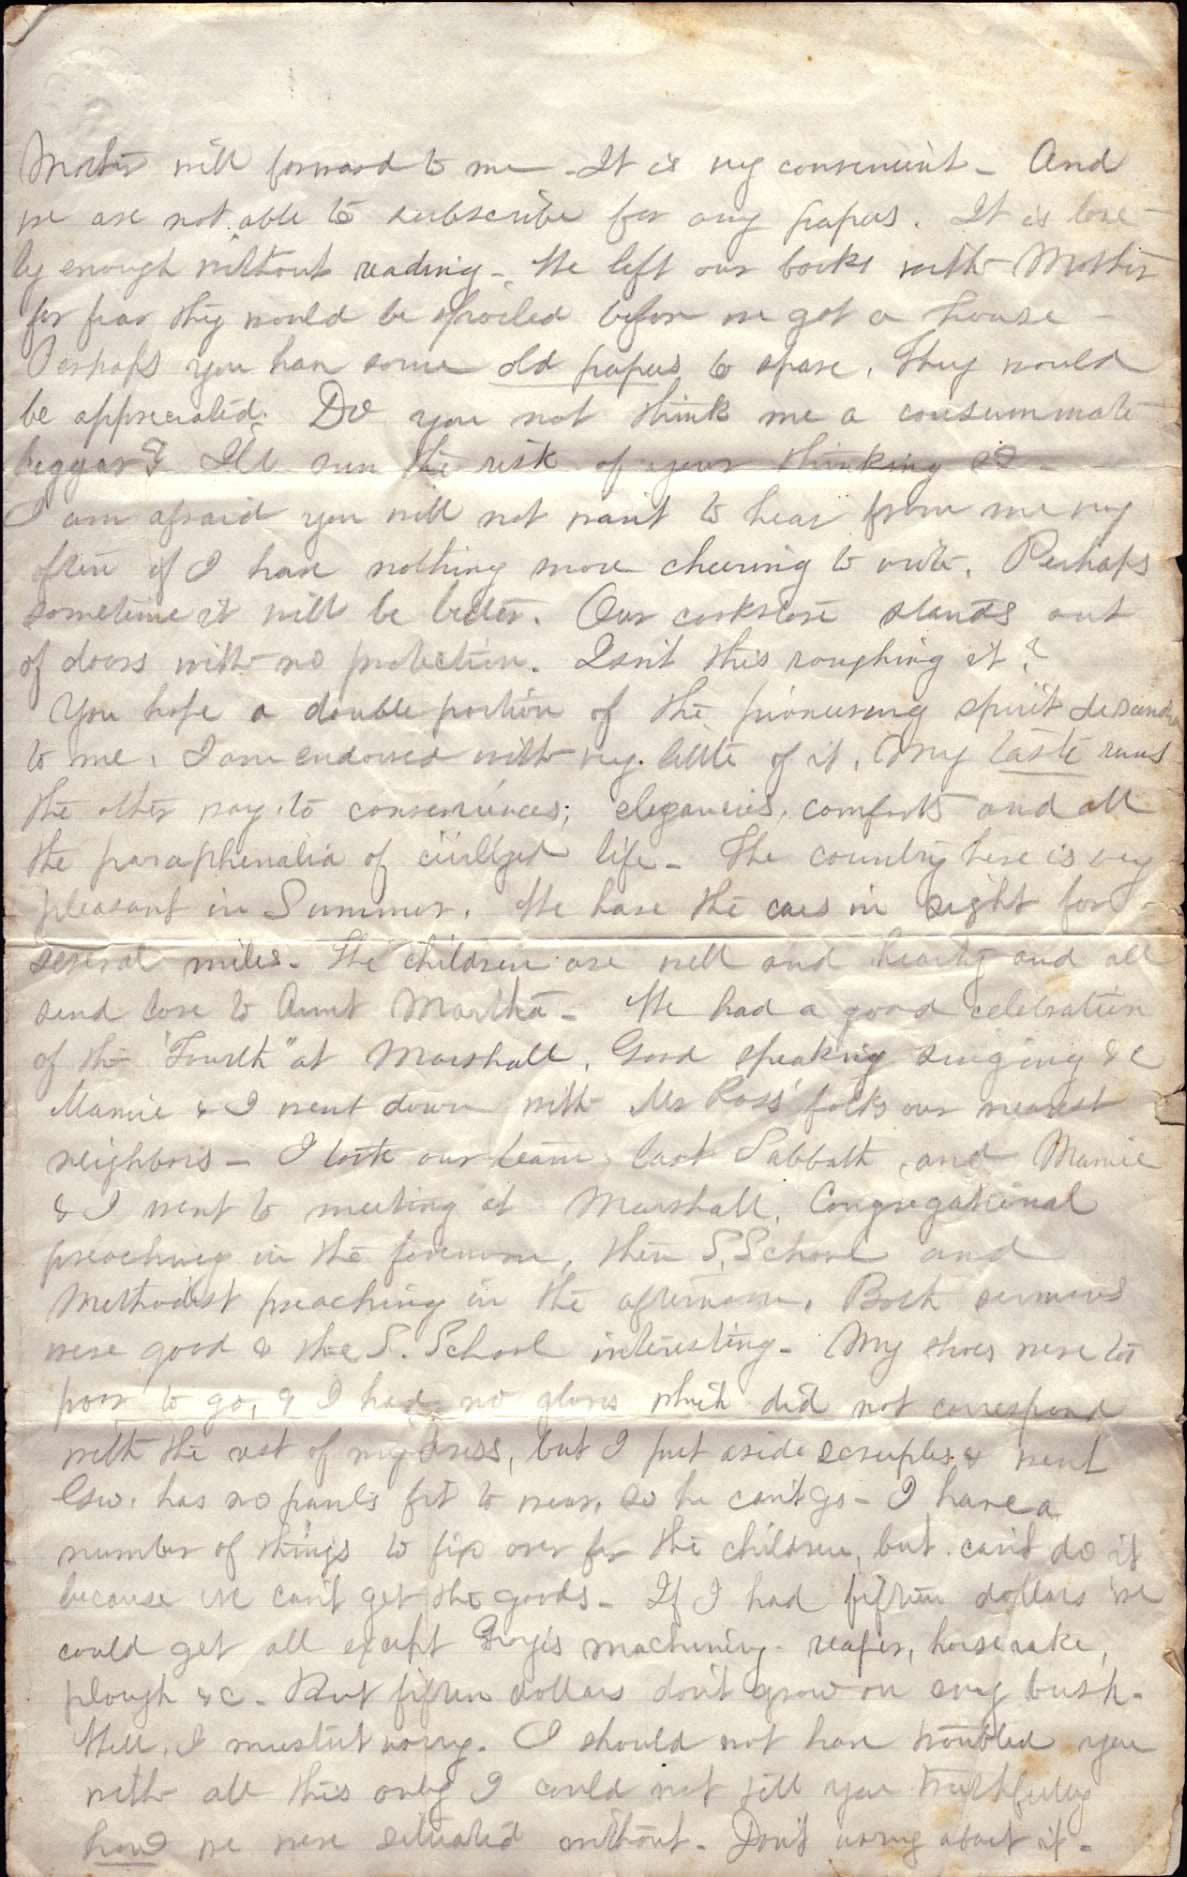 Mother will forward to me - It is very convenient - And
we are not able to subscribe for any papers. It is lone-
ly enough without reading - We left our books with Mother
for fear they would be spoiled before we got a house -
Perhaps you have some old papers to spare, they would
be appreciated. Do you not think me a consummate
beggar? I'll run the risk of your thinking so -
I am afraid you will not want to hear from me very
often if I have nothing more cheering to write. Perhaps
sometime it will be better. Our cookstove stands out
of doors with no protection. Isn't this roughing it?
You hope a double portion of the pioneering spirit descends
to me. I am endowed with very little of it. My taste runs
the other way to conveniences, elegancies, comforts and all
the paraphenalia of civilized life - The country here is very
pleasant in Summer. We have the cars in sight for
several miles - The children are well and hearty and all
send love to Aunt Martha - We had a good celebration
of the "Fourth" at Marshall. Good speaking singing &c
Mamie & I went down with Mr Ross' folks our nearest
neighbors - I took our team last Sabbath, and Mamie
& I went to meeting at Marshall, Congregational
preaching in the forenoon, then S. School and
Methodist preaching in the afternoon. Both sermons
were good & the S. School interesting - My shoes were too
poor to go, & I had no gloves which did not correspond
with the rest of my dress, but I put aside scruples & went
Edw. has no pants fit to wear, so he can't go - I have a
number of things to fix over for the children, but can't do it
because we can't get the goods - If I had fifteen dollars we
could get all except machinery - reaper, horse rake,
plough &c - But fifteen dollars don't grow on every bush -
Well, I mustn't worry. I should not have troubled you
with all this only I could not tell you truthfully
how we were situated without - Don't worry about it -